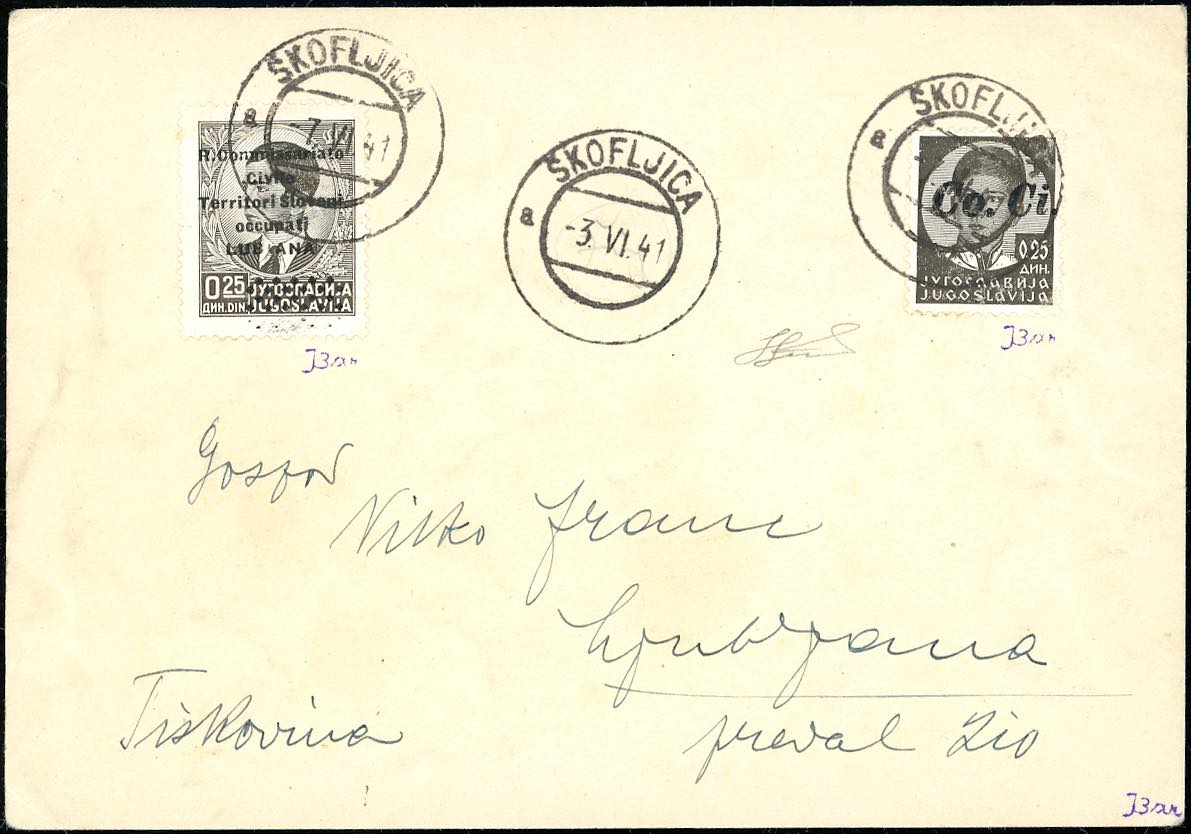 ŠKOFLJICA
a
-7. VI. 41
R. Commissariato
Civile
Territori Sloveni
occupati
LUBIANA
0.25 ЈУГОСЛАВИЈА
ДИН. DIN. JUGOSLAVIJA
ŠKOFLJICA
a
-3. VI. 41
ŠKOFLJICA
a
Co. Ci.
0.25
ДИН.
ЈУГОСЛАВИЈА
JUGOSLAVIJA
JBar
JBar
Gospod
Vitko Franc
Ljubljana
Tiskovina
JBar